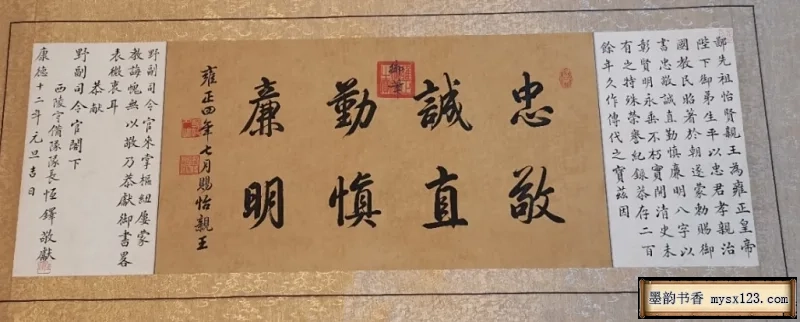 鄙先祖怡賢親王為雍正皇帝
陛下御弟生平以忠君孝親治
國教民昭著於朝遂蒙勅賜御
書忠敬誠直勤慎廉明八字以
彰賢明永垂不朽實開清史未
有之特殊榮譽紀録恭存二百
餘年久作傳代之寶茲因
忠敬
誠直
勤慎
廉明
御筆
雍正四年七月賜怡親王
野副司令官來掌樞紐屢蒙
教誨愧無以敬乃恭獻御書畧
表微衷耳
恭獻
野副司令官閣下
西陵守備隊隊長恆鐸敬獻
康德十二年元旦吉日
墨韵书香 mysx123.com